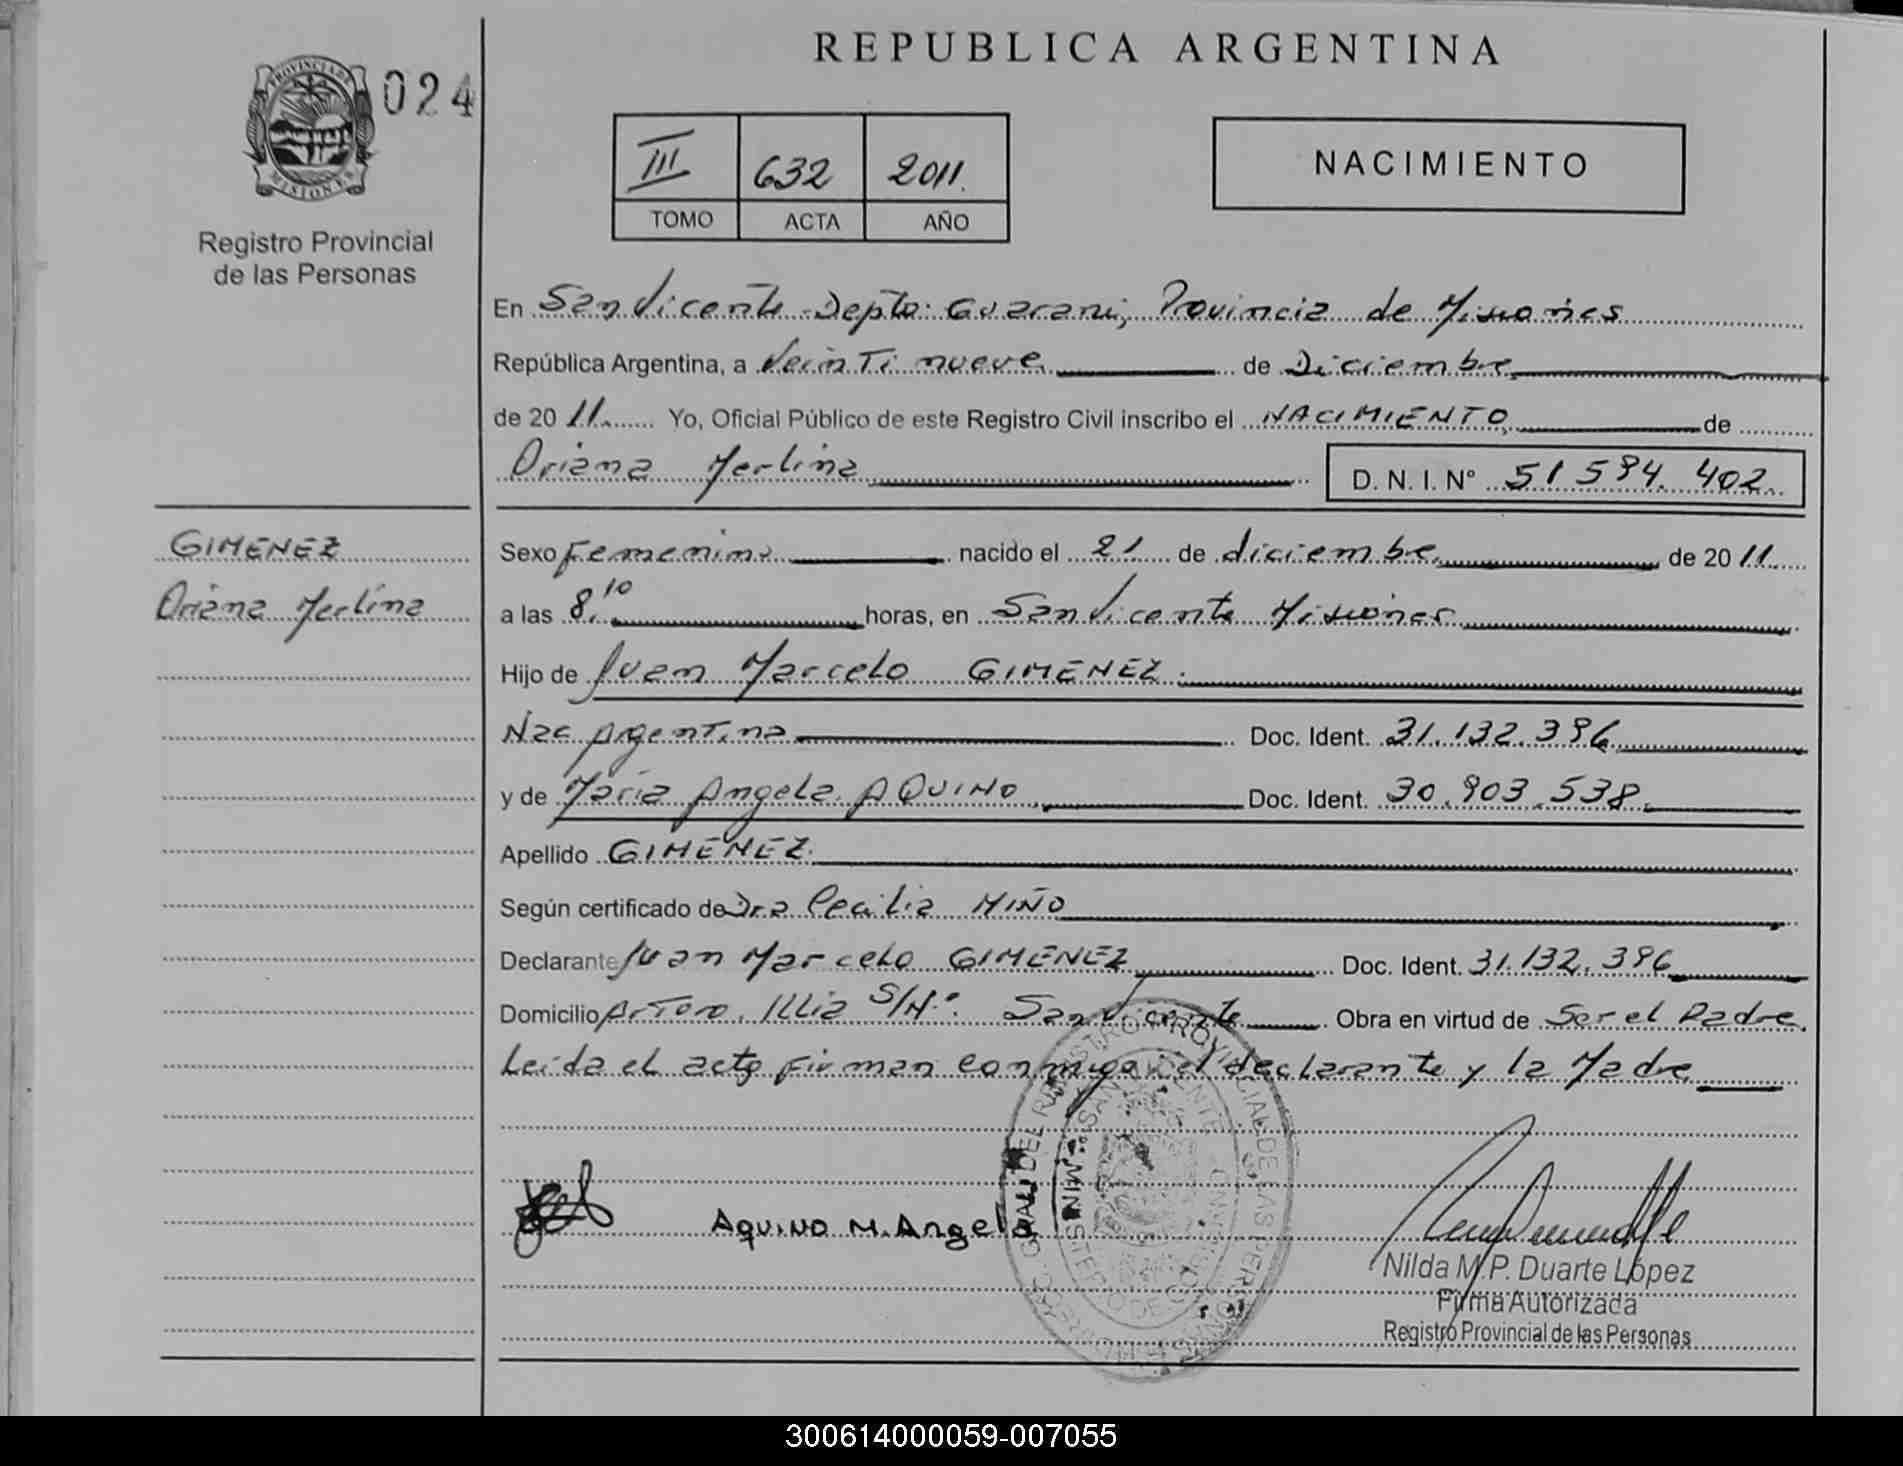 REPUBLICA ARGENTINA
PROVINCIA DE
MISIONES
024
Registro Provincial
de las Personas
III 632 2011.
TOMO ACTA AÑO
NACIMIENTO
En San Vicente Depto: Guarani, Provincia de Misiones
República Argentina, a Veinti nueve de Diciembre
de 2011. Yo, Oficial Público de este Registro Civil inscribo el NACIMIENTO de
Oriana Merlina D. N. I. N° 51 594. 402.
GIMENEZ
Oriana Merlina
Sexo Femenino nacido el 21 de diciembre de 2011
a las 8,10 horas, en San Vicente Misiones
Hijo de Juan Marcelo GIMENEZ.
Nac Argentina Doc. Ident. 31.132.396
y de Maria Angela AQUINO Doc. Ident. 30.903.538.
Apellido GIMENEZ.
Según certificado de Dra Cecilia MIÑO
Declarante Juan Marcelo GIMENEZ Doc. Ident. 31.132.396
Domicilio Arturo Illia S/N°. San Vicente Obra en virtud de Ser el Padre.
Leida el acta firman conmigo el declarante y la Madre
Aquino M. Angela
Nilda M.P. Duarte López
Firma Autorizada
Registro Provincial de las Personas
300614000059-007055